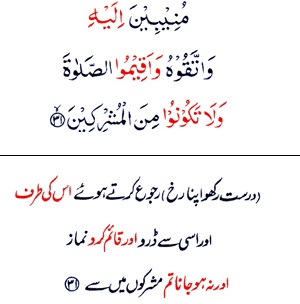 مُنِيْبِيْنَ اِلَيْهِ
وَاتَّقُوْهُ وَاَقِيْمُوا الصَّلٰوةَ
وَلَا تَكُوْنُوْا مِنَ الْمُشْرِكِيْنَ ۙ﴿۳۱﴾
(درست رکھو اپنا رخ) رجوع کرتے ہوئے اس کی طرف
اور اسی سے ڈرو اور قائم کرو نماز
اور نہ ہو جانا تم مشرکوں میں سے ﴿۳۱﴾